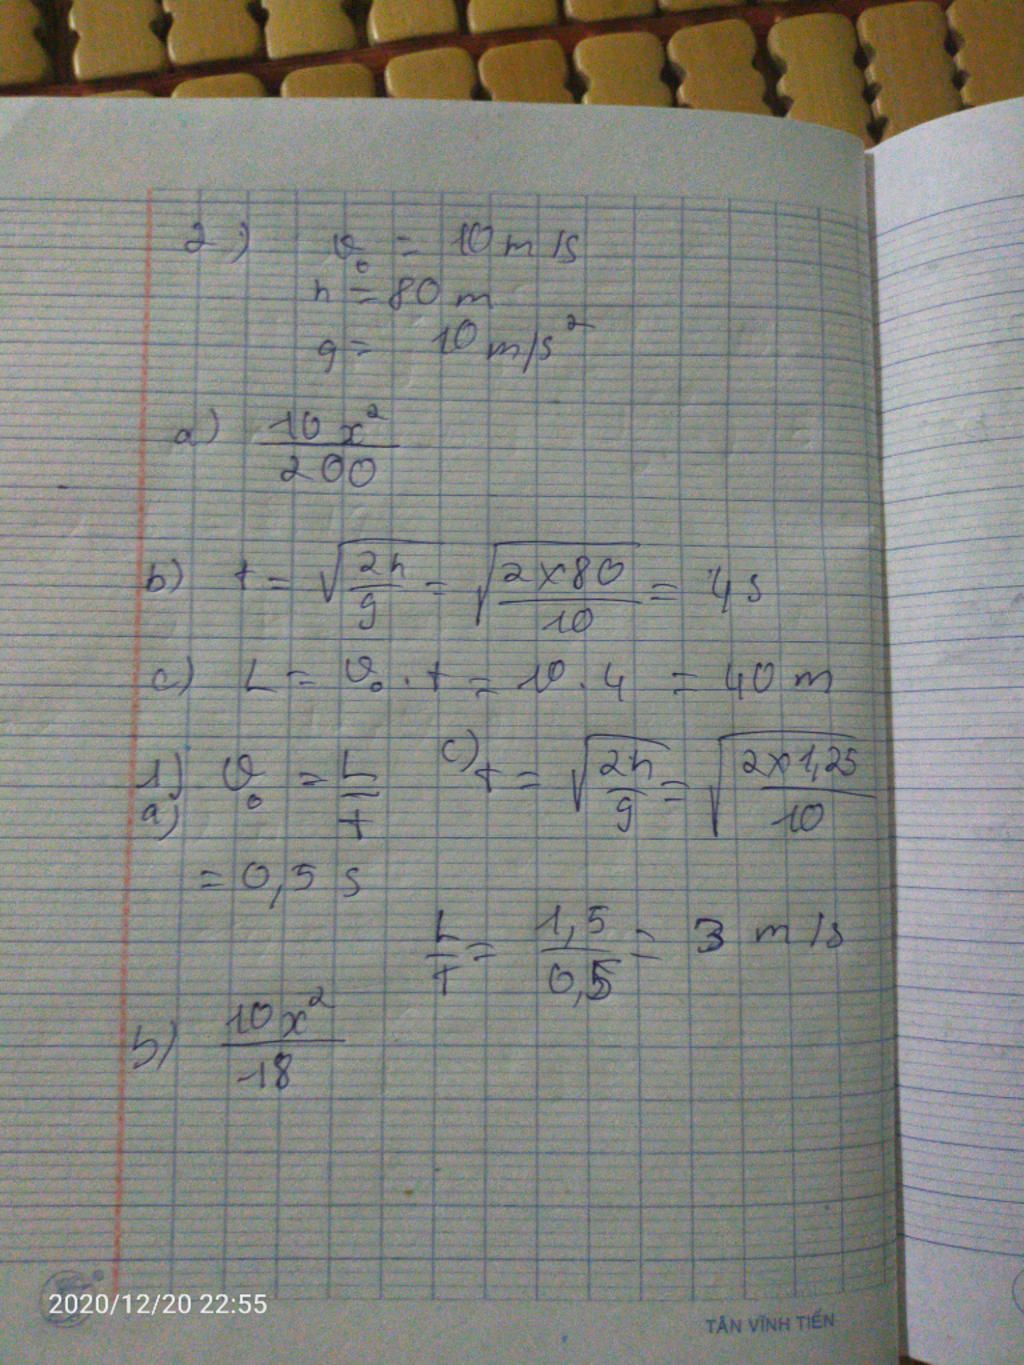 2) v₀ = 10 m/s
h = 80 m
g = 10 m/s²
a) 10 x² / 200
b) t = √(2h/g) = √(2×80/10) = 4 s
c) L = v₀ . t = 10 . 4 = 40 m
1) a) v₀ = L/t
c) t = √(2h/g) = √(2×1,25/10)
= 0,5 s
L/t = 1,5/0,5 = 3 m/s
b) 10x²/18
2020/12/20 22:55
TÂN VĨNH TIẾN